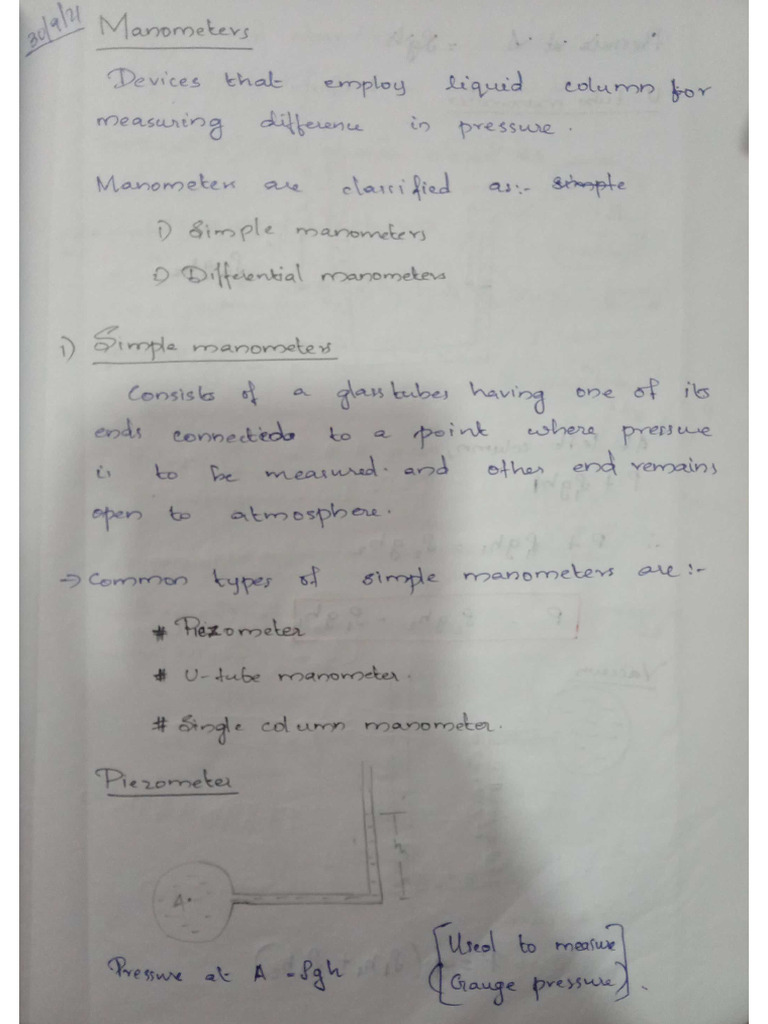 30/9/21
Manometers
Devices that employ liquid column for
measuring difference in pressure.
Manometers are classified as:- simple
i) Simple manometers
i) Differential manometers
i) Simple manometers
Consists of a glass tubes having one of its
ends connected to a point where pressure
is to be measured. and other end remains
open to atmosphere.
→ Common types of simple manometers are:-
# Piezometer
# U-tube manometer.
# Single column manometer.
Piezometer
h
A.
Pressure at A = ρgh
[Used to measure]
(Gauge pressure).